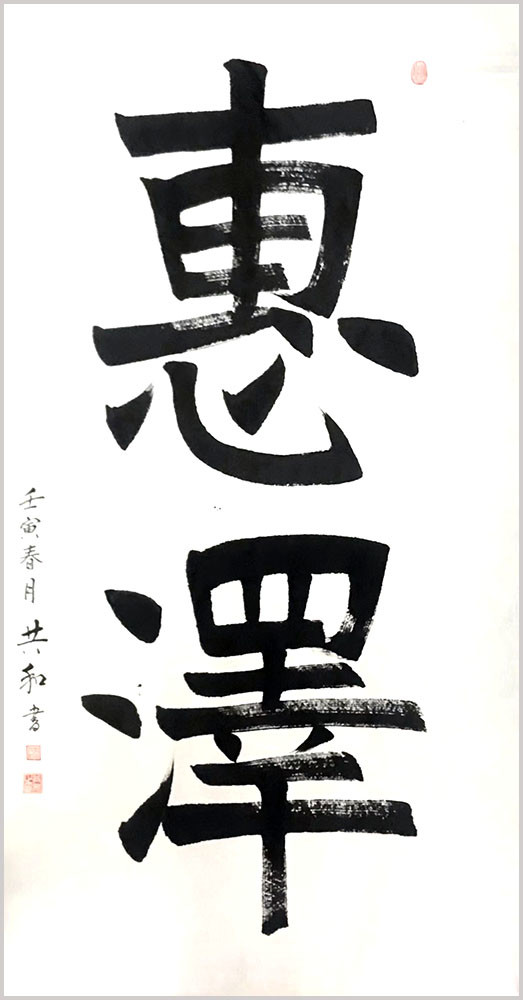 惠澤
壬寅春月共和書